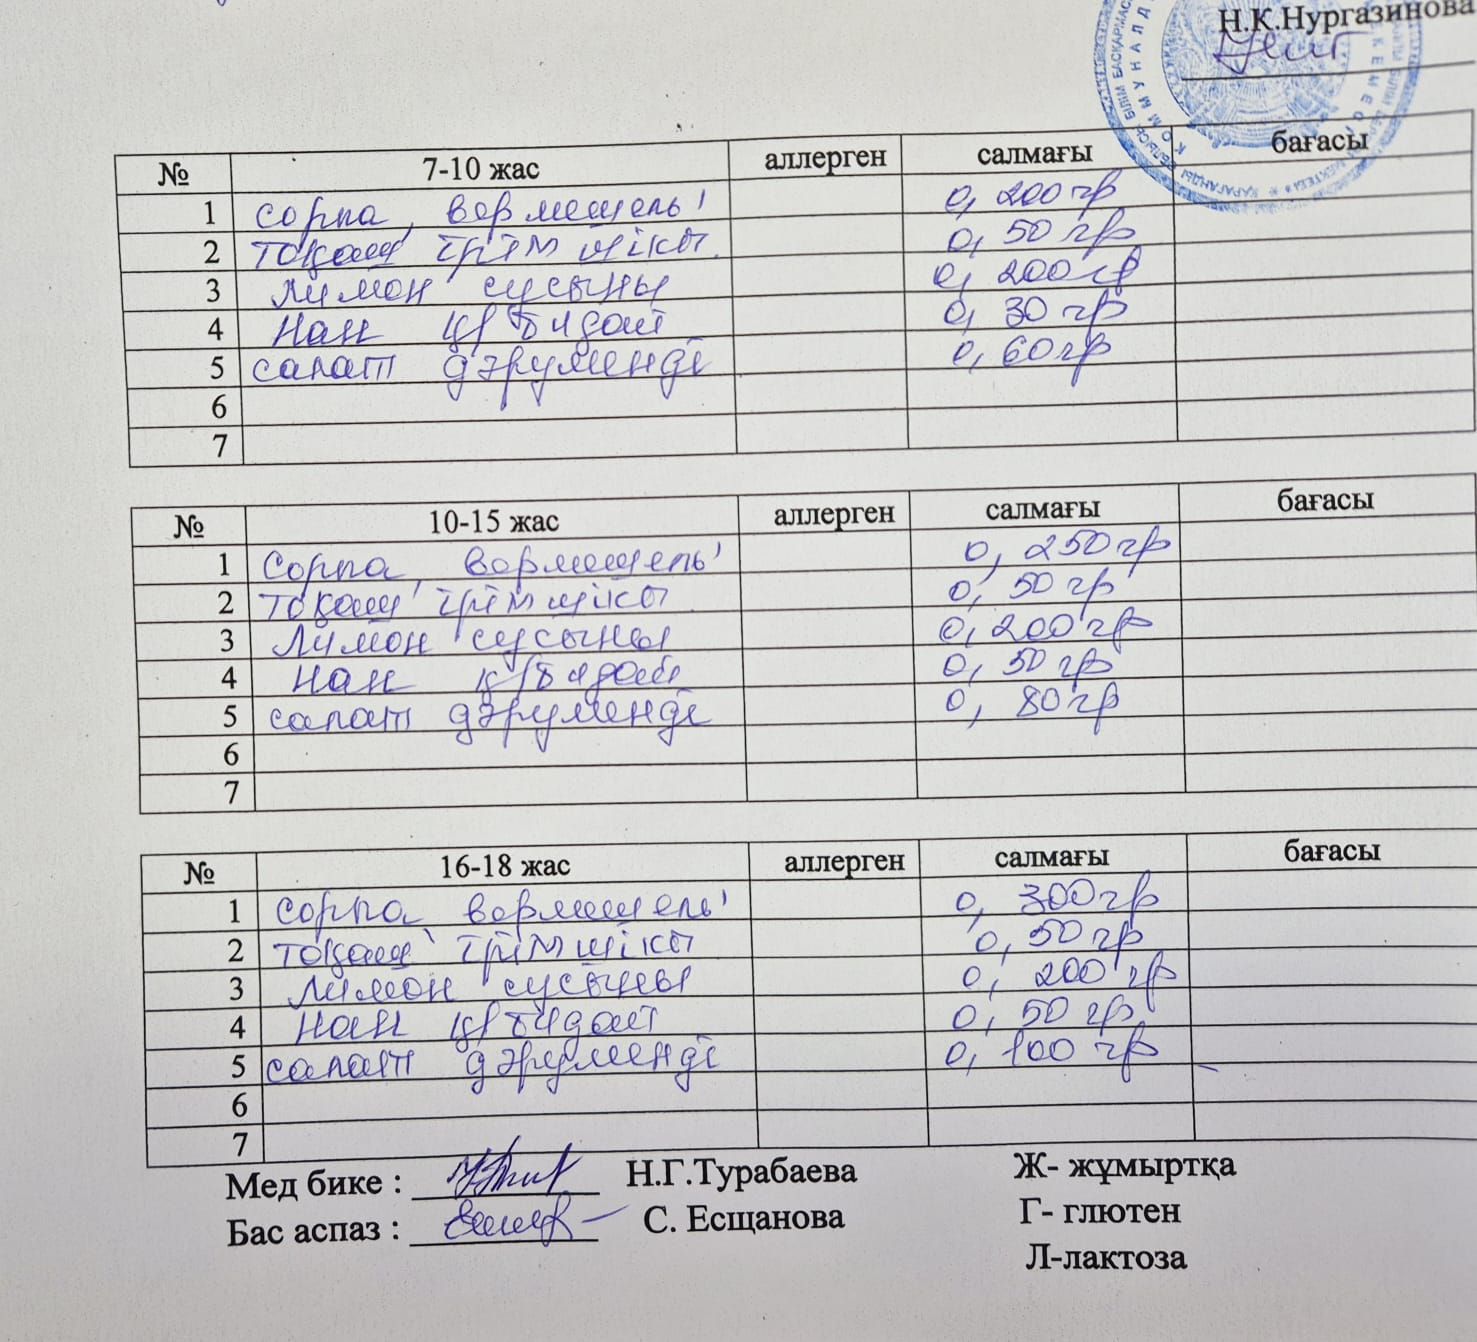 Н.К.Нургазинова
№ 7-10 жас аллерген салмағы бағасы
1 сорпа, вермешель 0, 200 гр
2 тоқаш ірімшікті 0, 50 гр
3 Лимон сусыны 0, 200 гр
4 Нан қ/бидай 0, 30 гр
5 салат дәруменді 0, 60 гр
6
7
№ 10-15 жас аллерген салмағы бағасы
1 Сорпа, вермешель 0, 250 гр
2 тоқаш ірімшікті 0, 50 гр
3 Лимон сусыны 0, 200 гр
4 Нан қ/бидай 0, 50 гр
5 салат дәруменді 0, 80 гр
6
7
№ 16-18 жас аллерген салмағы бағасы
1 сорпа, вермешель 0, 300 гр
2 тоқаш ірімшікті 0, 50 гр
3 Лимон сусыны 0, 200 гр
4 Нан қ/бидай 0, 50 гр
5 салат дәруменді 0, 100 гр
6
7
Мед бике : Н.Г.Турабаева Ж- жұмыртқа
Бас аспаз : С. Есщанова Г- глютен
Л-лактоза